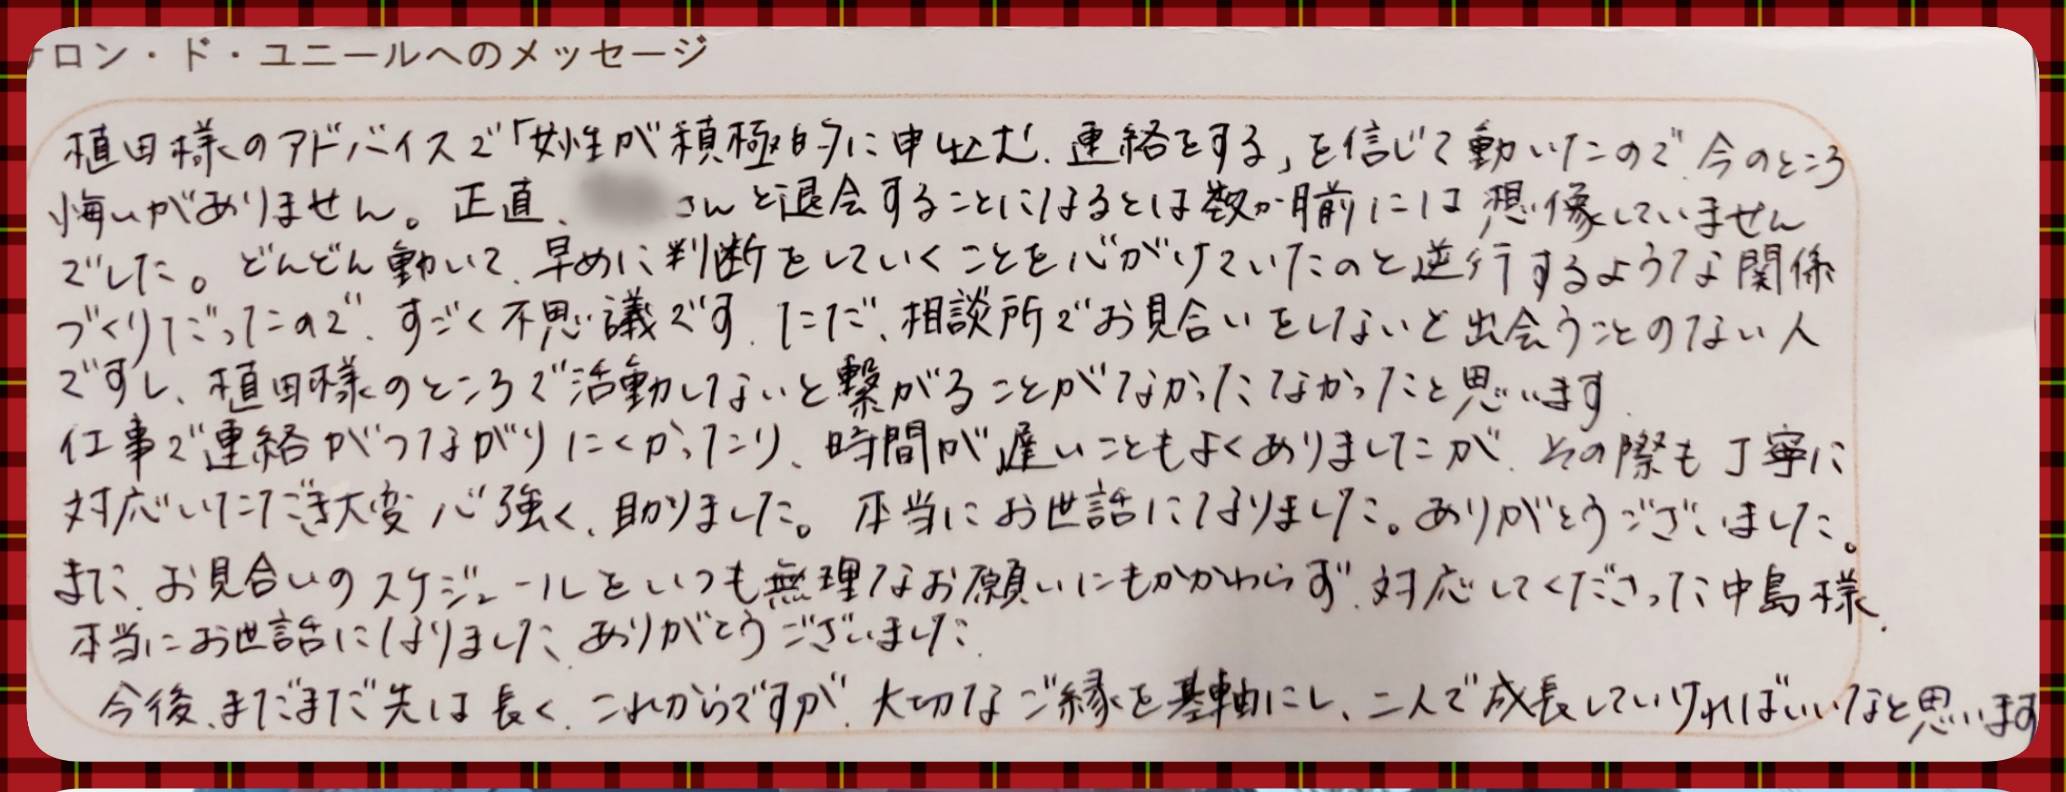 サロン・ド・ユニールへのメッセージ
植田様のアドバイスで「女性が積極的に申し込む、連絡をする」を信じて動いたので、今のところ
悔いがありません。正直、 さんと退会することになるとは数か月前には想像していません
でした。どんどん動いて、早めに判断をしていくことを心がけていたのと逆行するような関係
づくりだったので、すごく不思議です。ただ、相談所でお見合いをしないと出会うことのない人
ですし、植田様のところで活動しないと繋がることがなかったなかったと思います。
仕事で連絡がつながりにくかったり、時間が遅いこともよくありましたが、その際も丁寧に
対応いただき大変心強く、助りました。本当にお世話になりました。ありがとうございました。
また、お見合いのスケジュールをいつも無理なお願いにもかかわらず、対応してくださった中島様、
本当にお世話になりました、ありがとうございました。
今後、まだまだ先は長く、これからですが、大切なご縁を基軸にし、二人で成長していければいいなと思います